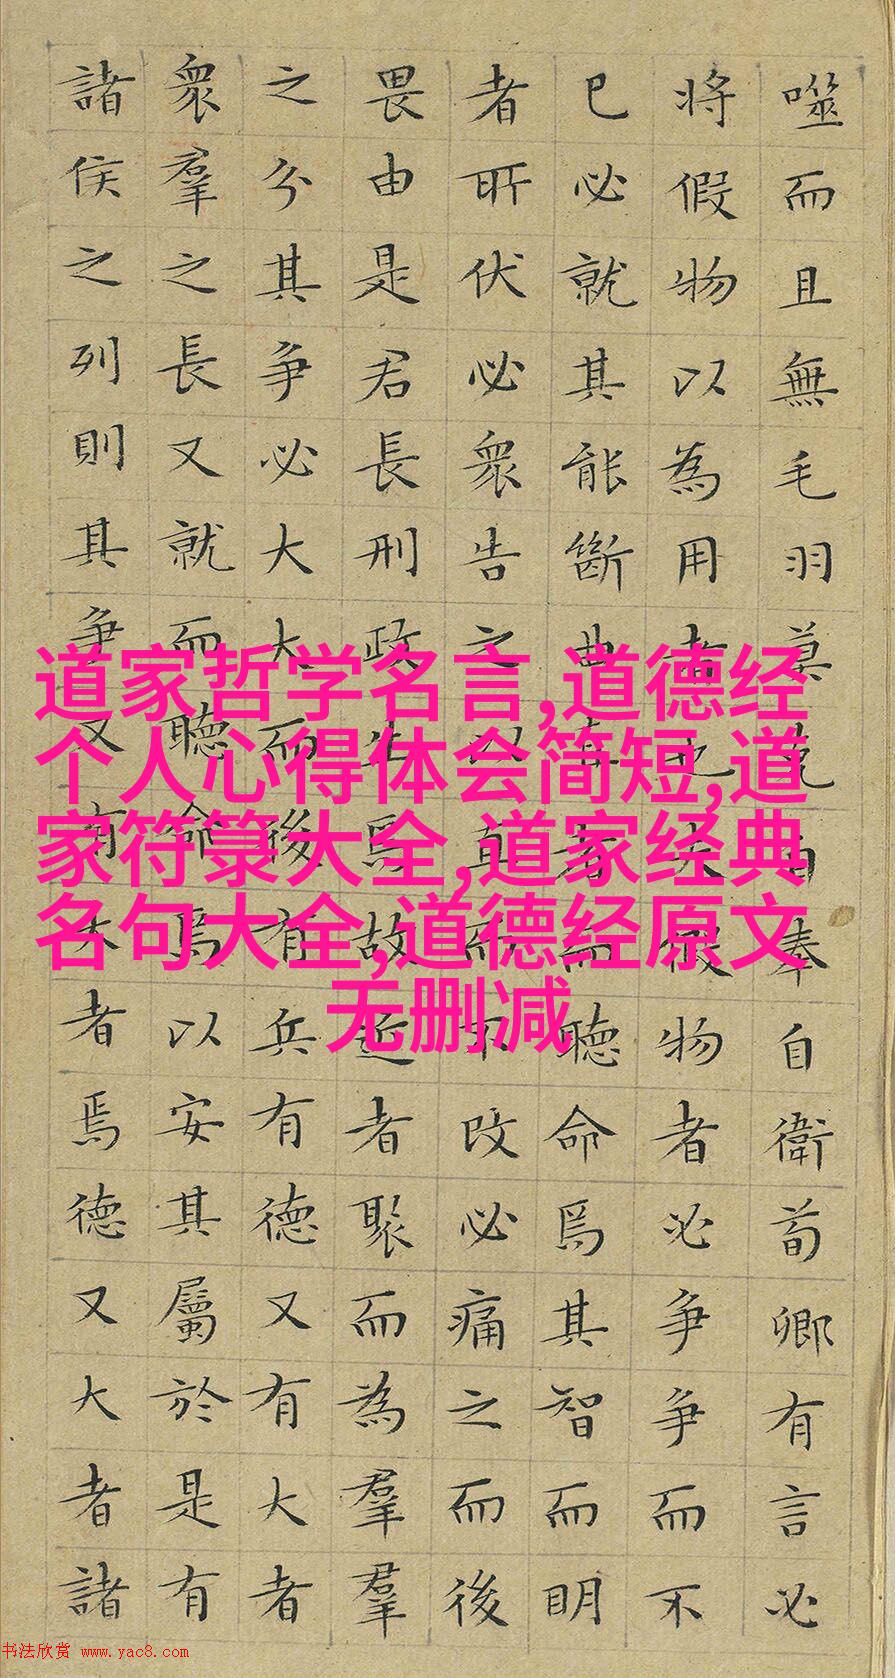 噬而且無毛羽莫克自奉自衛荀卿有言必
將假物以為用者也夫假物者必爭爭而不
已必就其能斷曲直者而聽命焉其智而明
者所伏必衆告之以直而不改必痛之而後
畏由是君長刑政生焉故近者聚而為羣羣
之分其爭必大大而後有兵有德又有大者
衆羣之長又就而聽命焉以安其屬於是有
諸侯之列則其爭又有大者焉德又大者諸
道家哲学名言,道德经
个人心得体会简短,道
家符箓大全,道家经典
名句大全,道德经原文
无删减
书法欣赏 www.yac8.com